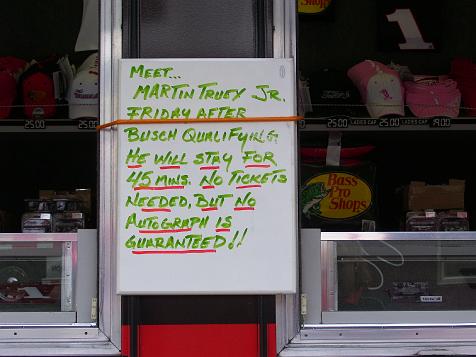 MEET...
MARTIN TRUEX JR.
FRIDAY AFTER
BUSCH QUALIFYING.
HE WILL STAY FOR
45 MINS. NO TICKETS
NEEDED, BUT NO
AUTOGRAPH IS
GUARANTEED!!
1
25.00
25.00
LADIES CAP 25.00
LADIES CAP 25.00
19.00
Bass Pro Shops
1